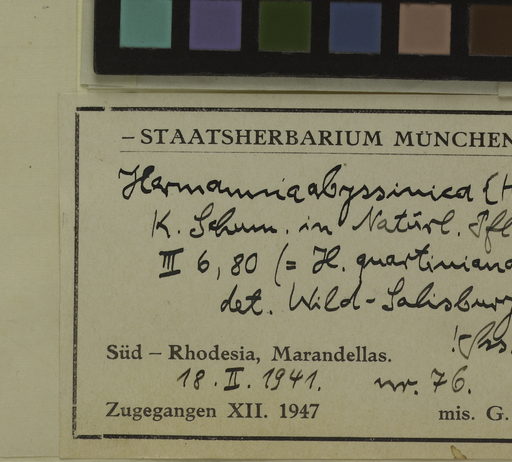 – STAATSHERBARIUM MÜNCHEN
Hermannia abyssinica (H
K. Schum. in Natürl. Pfl
III 6, 80 (= H. quartiniana
det. Wild - Salisbury
Süd – Rhodesia, Marandellas.
18. II. 1941. nr. 76.
Zugegangen XII. 1947 mis. G.